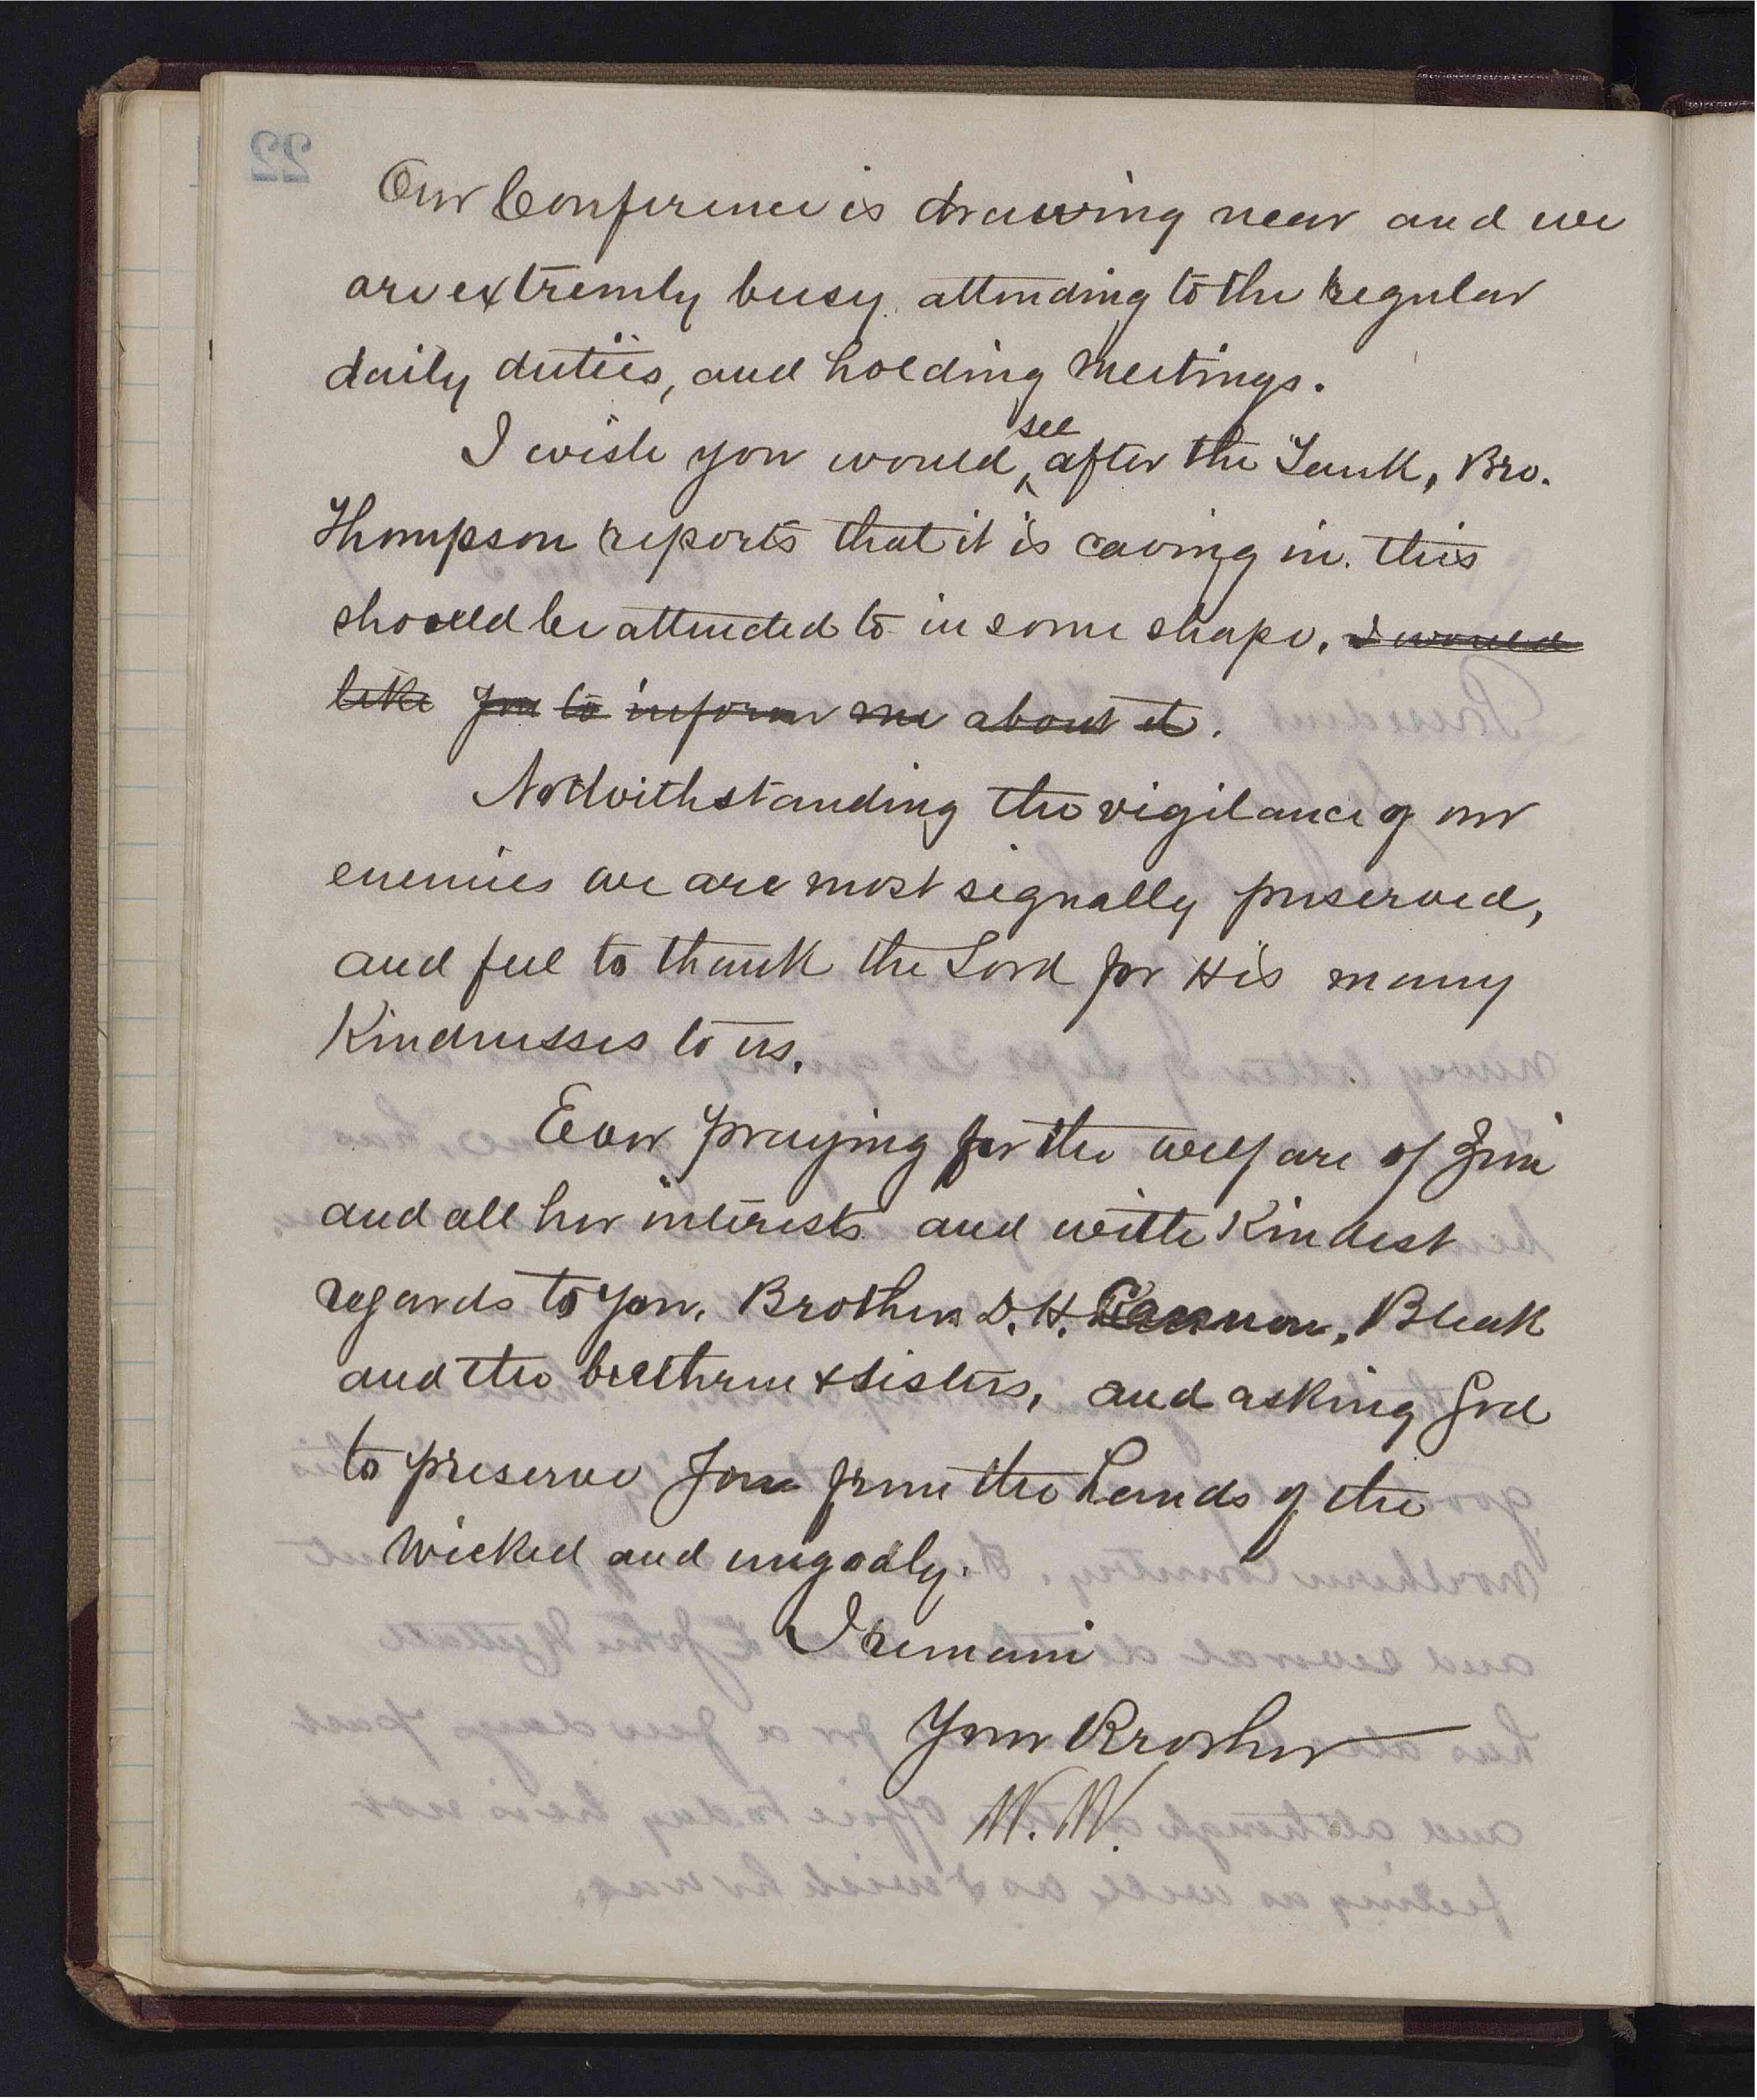 Our Conference is drawing near and we
are extremly busy attending to the regular
daily duties, and holding meetings.
I wish you would see after the Tank, Bro.
Thompson reports that it is caving in. this
should be attended to in some shape. I would
like you to inform me about it.
Notwithstanding the vigilance of our
enemies we are most signally preserved,
and feel to thank the Lord for His many
Kindnesses to us.
Ever praying for the welfare of Zion
and all her interests and with Kindest
regards to you, Brothers D. H. Cannon, Bleak
and the brethren & sisters, and asking God
to preserve you from the hands of the
wicked and ungodly.
I remain
Your Brother
W. W.
22